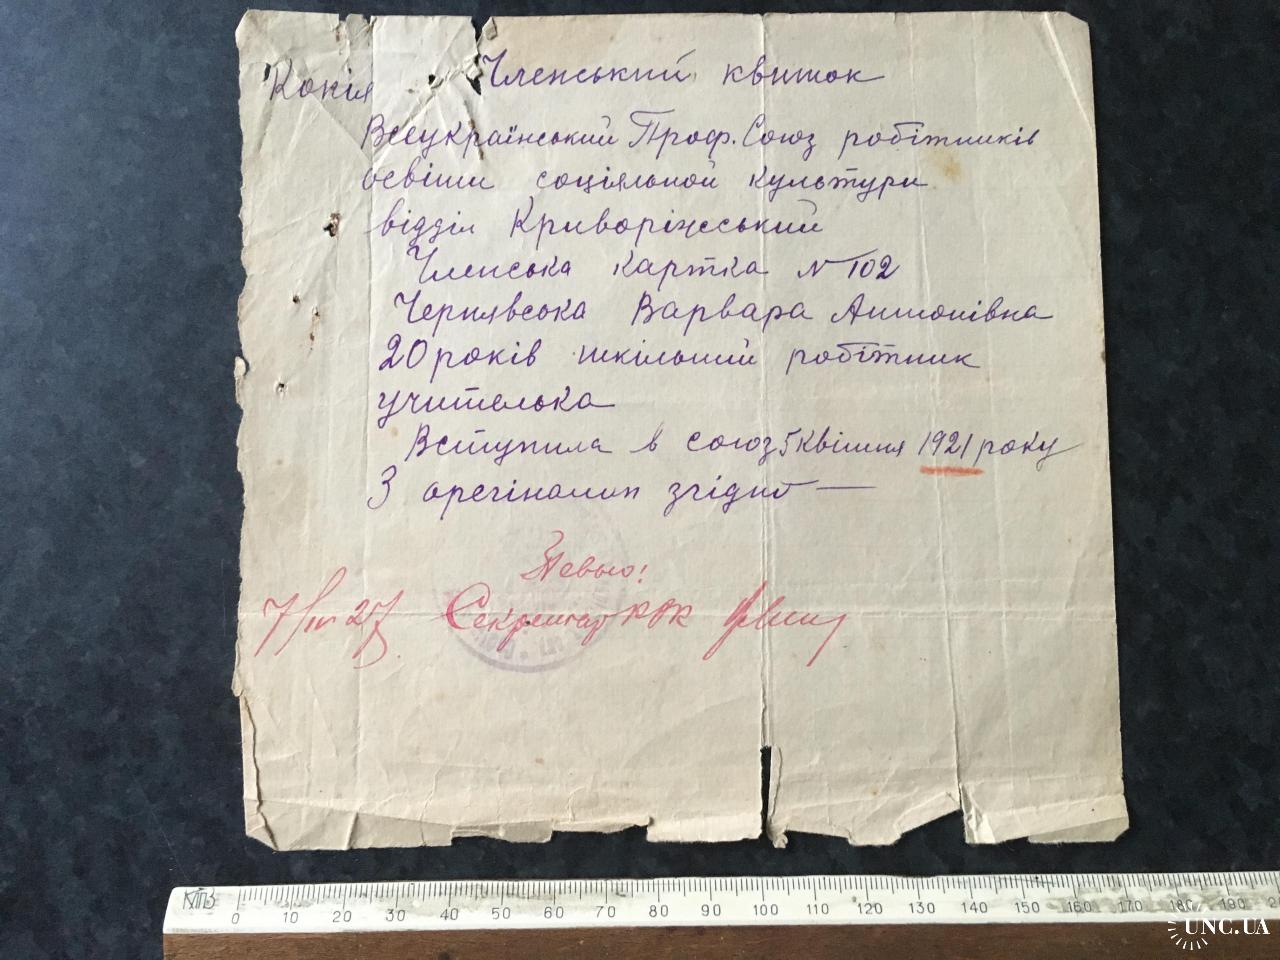 Копія
Членський квиток
Всеукраїнський Проф. Союз робітників
освіти соціяльной культури
відділ Криворіжеський
Членська картка № 102
Чернявська Варвара Антонівна
20 років шкільний робітник
учителька
Вступила в союз 5 квітня 1921 року
З орегіналом згідно —
Секретар
КПЗ
0 10 20 30 40 50 60 70 80 90 100 110 120 130 140 150 160 170 180 190
UNC.UA